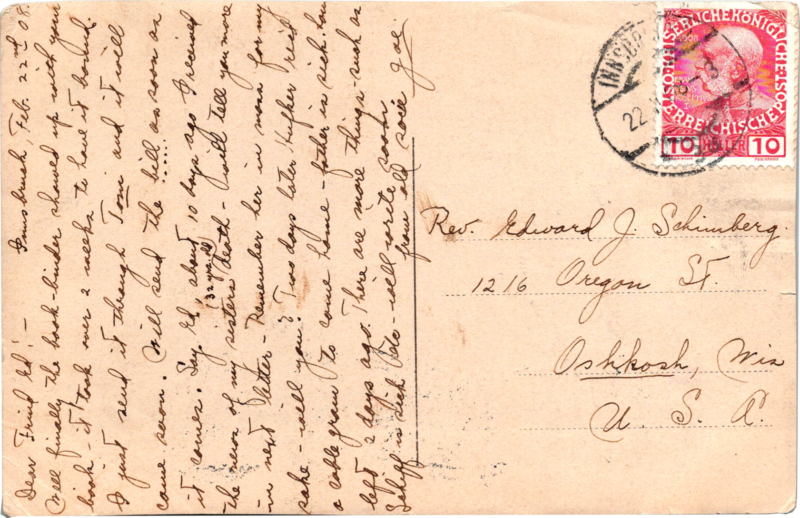 Innsbruck, Feb. 22nd 08.
Dear Friend Ed! —
Well finally the book-binder showed up with your
book - it took over 2 weeks to have it bound.
I just send it through Tomi and it will
come soon. Will send the bill as soon as
it comes. Say, Ed, about 10 days ago I received
32 yrs. old
the news of my sister's death - will tell you more
in next letter - Remember her in mass for my
sake - will you? Two days later Aug. Heier rec'd
a cablegram to come home - father is sick.
left 2 days ago. There are more things - such as
will write soon.
from old soc. Joe
INNSBR
22
8-3
KAISERLICHE KÖNIGLICHE ÖSTERREICHISCHE POST
1908
10 HELLER 10
Rev. Edward J. Schimberg.
1216 Oregon St.
Oshkosh, Wis
U. S. A.